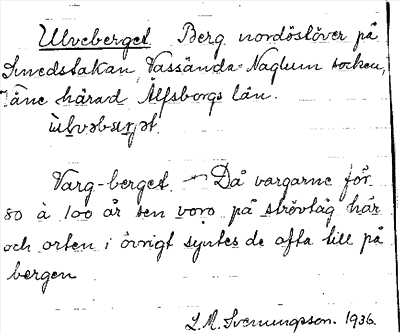 Ulveberget Berg nordöstöver på
Smedstakan, Vassända-Naglum socken,
Väne härad Älfsborgs län.
Varg-berget. — Då vargarne för
80 à 100 år sen voro på strövtåg här
och orten i övrigt syntes de ofta till på
bergen
L.M. Svenungsson. 1936.